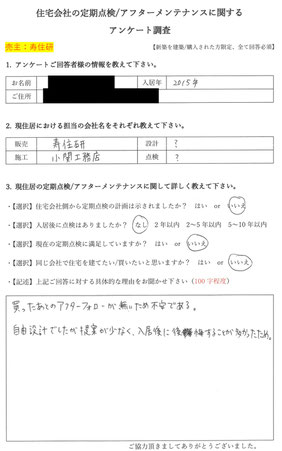 住宅会社の定期点検/アフターメンテナンスに関する
アンケート調査
売主：寿住研
【新築を建築/購入された方限定、全て回答必須】
1. アンケートご回答者様の情報を教えて下さい。
お名前 入居年 2015年
ご住所
2. 現住居における担当の会社名をそれぞれ教えて下さい。
販売 寿住研 設計 ?
施工 小関工務店 点検 ?
3. 現住居の定期点検/アフターメンテナンスに関して詳しく教えて下さい。
・【選択】住宅会社側から定期点検の計画は示されましたか？ はい or いいえ
・【選択】入居後に点検はありましたか？ なし 2年以内 2～5年以内 5～10年以内
・【選択】現在の定期点検に満足していますか？ はい or いいえ
・【選択】同じ会社で住宅を建てたい/買いたいと思いますか？ はい or いいえ
・【記述】上記ご回答に対する具体的な理由をお聞かせ下さい（100字程度）
買ったあとのアフターフォローが無いため不安である。
自由設計でしたが提案が少なく、入居後に後悔することが多かったため。
ご協力頂きましてありがとうございました。